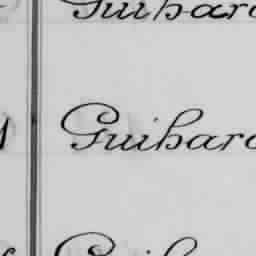 Guihard
Guihard